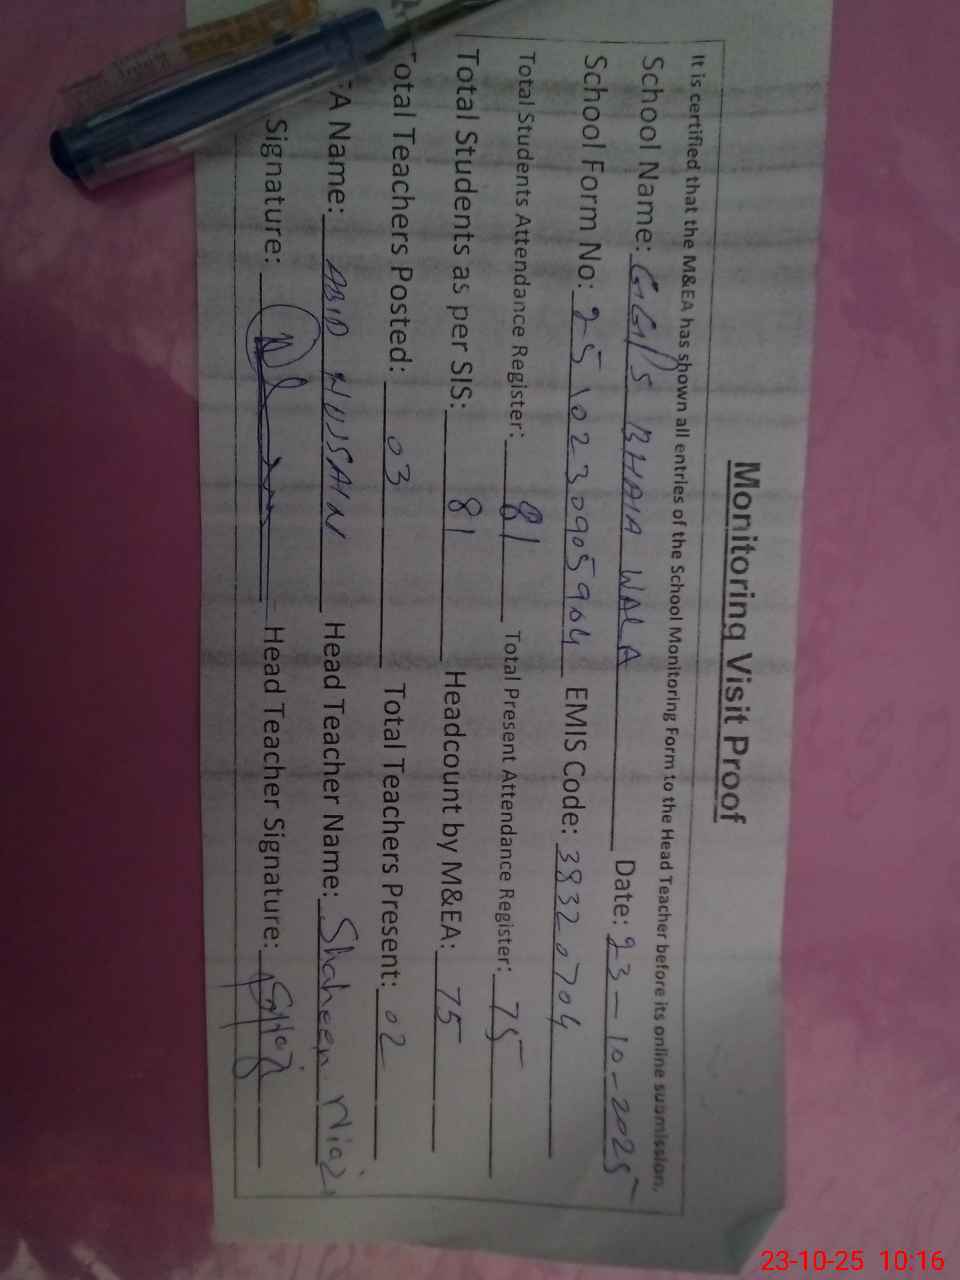 Monitoring Visit Proof
It is certified that the M&EA has shown all entries of the School Monitoring Form to the Head Teacher before its online submission.
School Name: GGPS BHAIA WALA Date: 23-10-2025
School Form No: 2510230905904 EMIS Code: 38320704
Total Students Attendance Register: 81 Total Present Attendance Register: 75
Total Students as per SIS: 81 Headcount by M&EA: 75
Total Teachers Posted: 03 Total Teachers Present: 02
EA Name: ABID HUSSAIN Head Teacher Name: Shaheen Niazi
Signature: Head Teacher Signature:
23-10-25 10:16